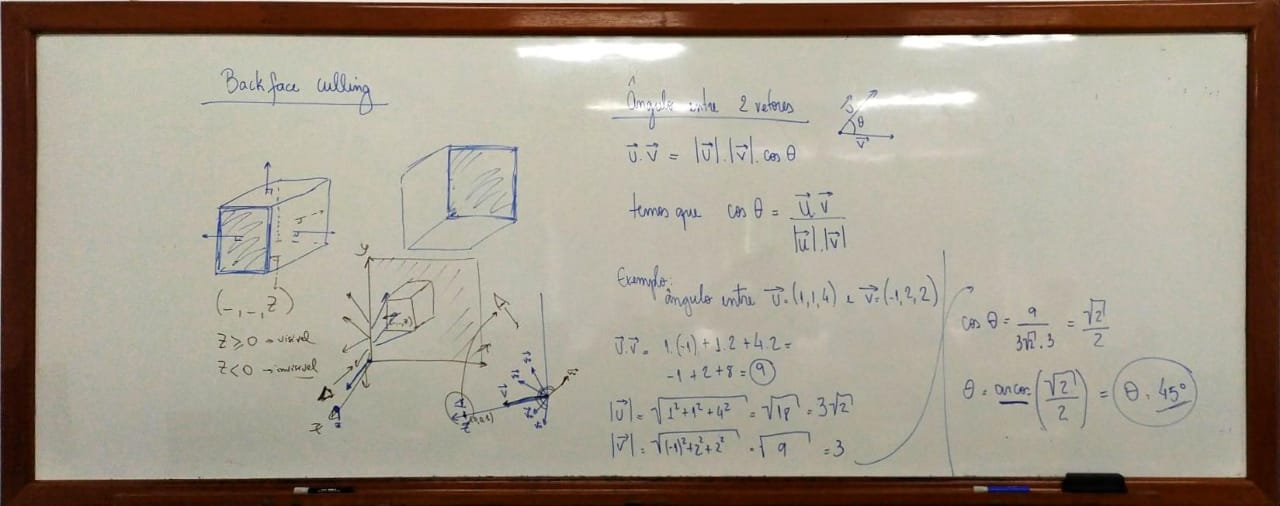 Backface culling
(-,-,Z)
Z ≥ 0 → visível
Z < 0 → invisível
y
z
Ângulo entre 2 vetores
θ
v⃗
u⃗.v⃗ = |u⃗|.|v⃗|.cos θ
temos que cos θ = u⃗.v⃗ / |u⃗|.|v⃗|
Exemplo:
ângulo entre u⃗=(1,1,4) e v⃗=(-1,2,2)
u⃗.v⃗ = 1.(-1)+1.2+4.2=
-1+2+8=9
|u⃗| = √1²+1²+4² = √18 = 3√2
|v⃗| = √(-1)²+2²+2² = √9 = 3
cos θ = 9 / 3√2.3 = √2 / 2
θ = arccos (√2 / 2) = θ = 45°